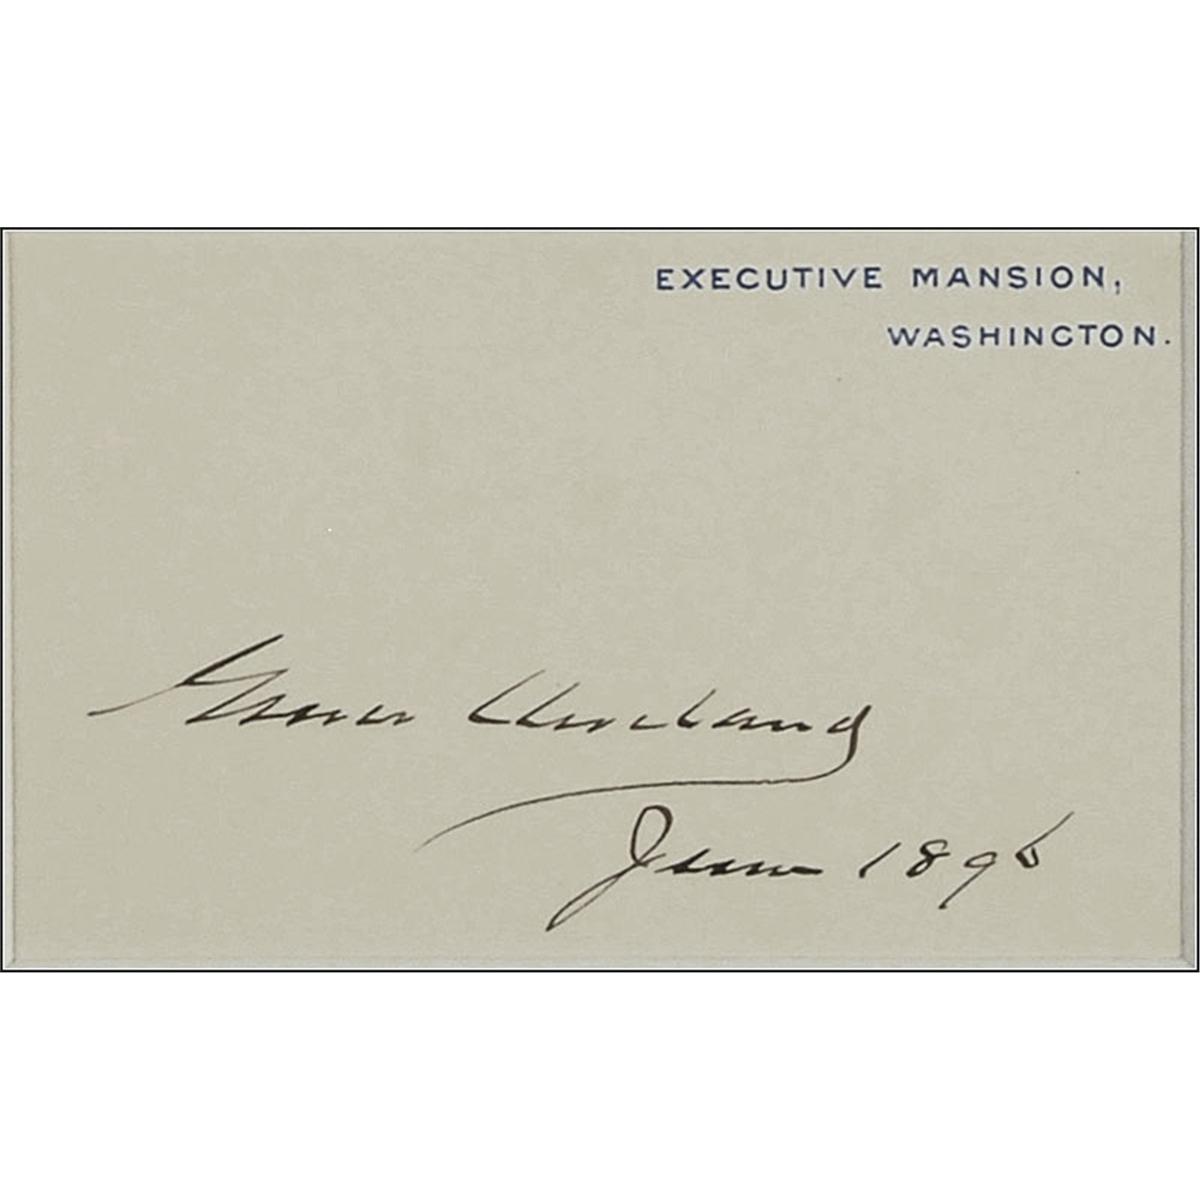 EXECUTIVE MANSION,
WASHINGTON.
Grover Cleveland
June 1896